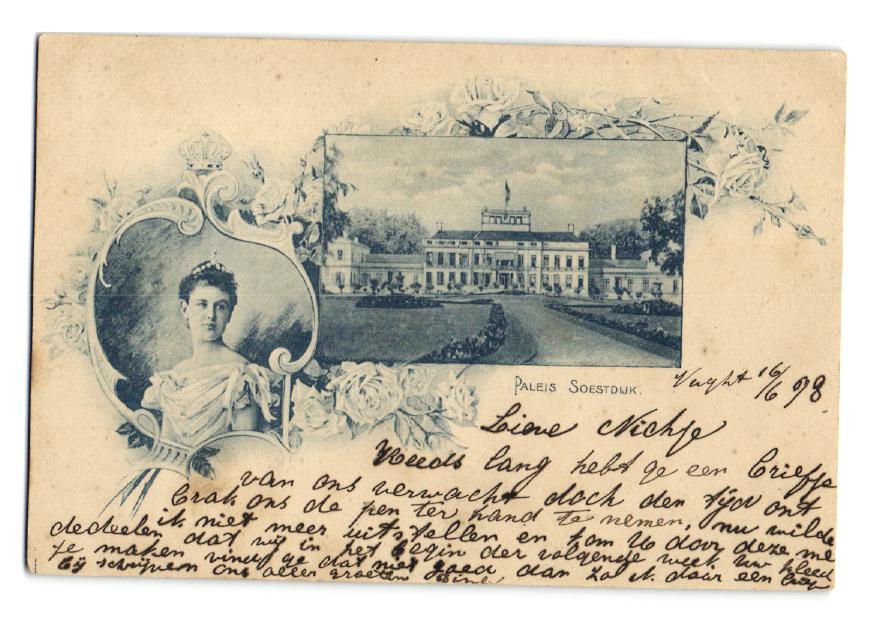 PALEIS SOESTDIJK.
Vught 16/6 98
Lieve Nichtje
Reeds lang hebt ge een briefje
van ons verwacht doch den tijd ont
brak ons de pen ter hand te nemen, nu wilde
ik niet meer uitstellen en kom U door deze me
dedeelen dat wij in het begin der volgende week uw kleed
te maken vind ge dat niet goed dan zo ik daar een
bij schrijven ons aller groeten